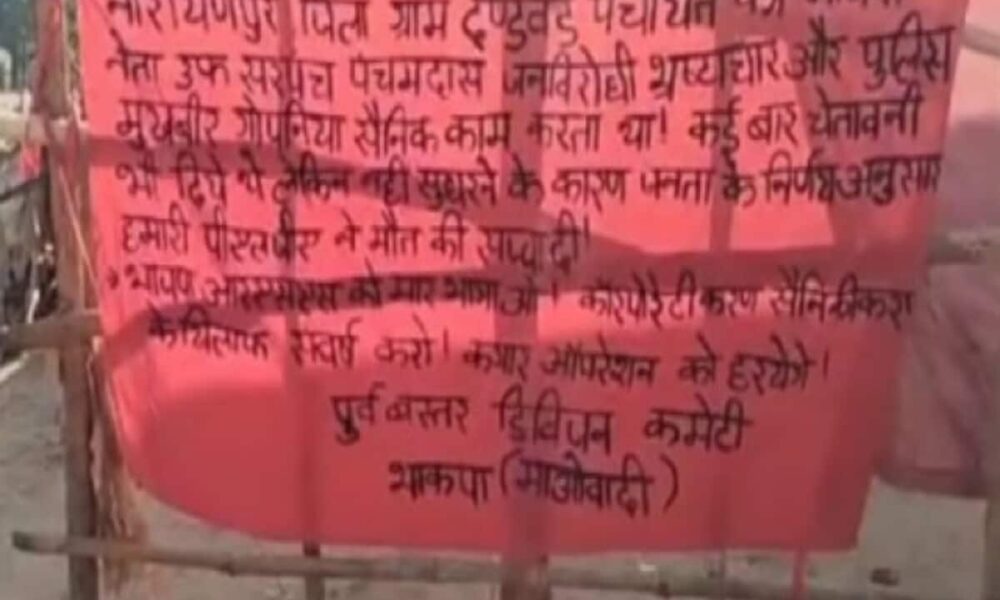 नारायणपुर जिला ग्राम दण्डवंड पंचायत
नेता उर्फ सरपंच पंचमदास जनविरोधी भ्रष्याचार और पुलिस
मुखबीर गोपनिया सैनिक काम करता था! कई बार चेतावनी
भी दिये थे लेकिन नही सुधरने के कारण जनता के निर्णय अनुसार
हमारी पीएलजीए ने मौत की सज्वा दी!
भाजपा आरएसएस को मार भागाओ! कॉरपोरेटीकरण सैनिकीकरण
के खिलाफ संघर्ष करो! कगार ऑपरेशन को हरायेंगे!
पुर्व बस्तर डिविजन कमेटी
भाकपा (माओवादी)